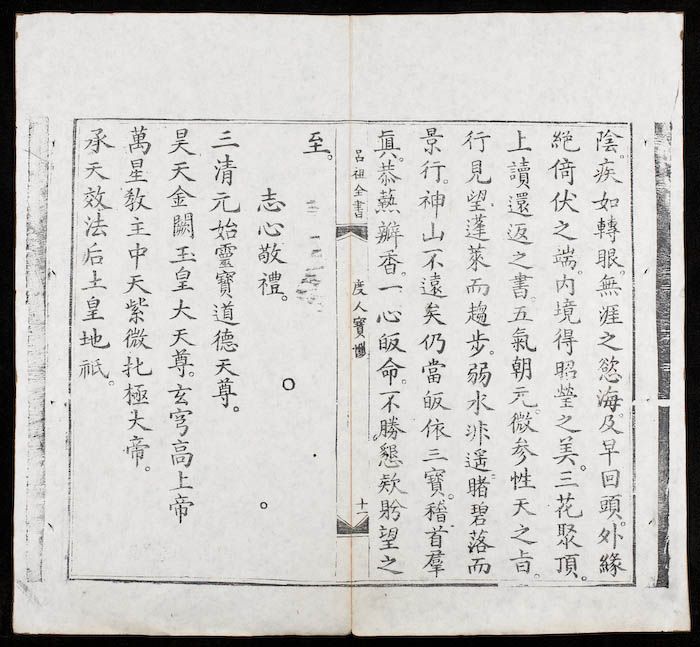 陰疾如轉眼。無涯之慾海。及早回頭。外緣
絕倚伏之端。內境得昭瑩之美。三花聚頂。
上讀還返之書。五氣朝元。微參性天之旨。
行見望蓬萊而趨步。弱水非遥。睹碧落而
景行。神山不遠矣。仍當皈依三寶。稽首羣
眞。恭爇瓣香。一心皈命。不勝懇欵盻望之
呂祖全書
度人寶懺
十一
至。
志心敬禮。
三清元始靈寶道德天尊。
昊天金闕玉皇大天尊。玄穹高上帝
萬星敎主中天紫微北極大帝。
承天效法后土皇地祇。